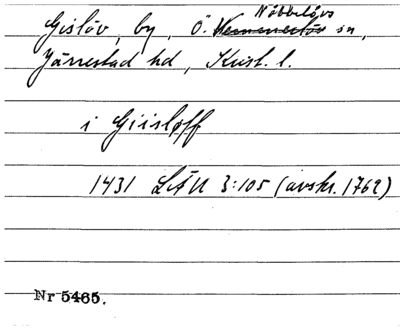 Gislöv, by, Ö. Nöbbelövs sn,
Järrestad hd, Krist. l.
i Giisløff
1431 LÄU 3:105 (avskr. 1762)
Nr 5465.